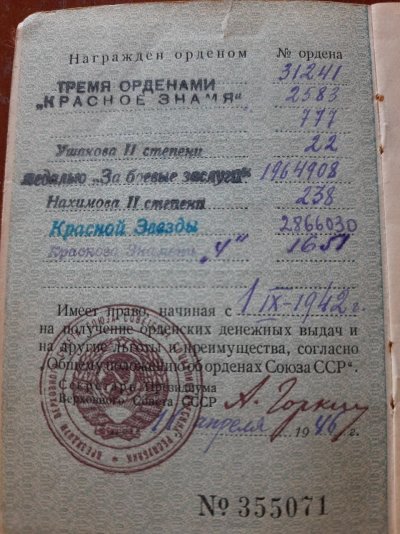 Награжден орденом № ордена
ТРЕМЯ ОРДЕНАМИ 31241
„КРАСНОЕ ЗНАМЯ“ 2583
777
Ушакова II степени 22
медалью „За боевые заслуги“ 1964908
Нахимова II степени 238
Красной Звезды 2866030
Красного Знамени „4“ 1651
Имеет право, начиная с 1 IX-1942 г.
на получение орденских денежных выдач и
на другие льготы и преимущества, согласно
„Общему положению об орденах Союза ССР“.
Секретарь Президиума
Верховного Совета СССР А. Горкин
апреля 1946 г.
№ 355071